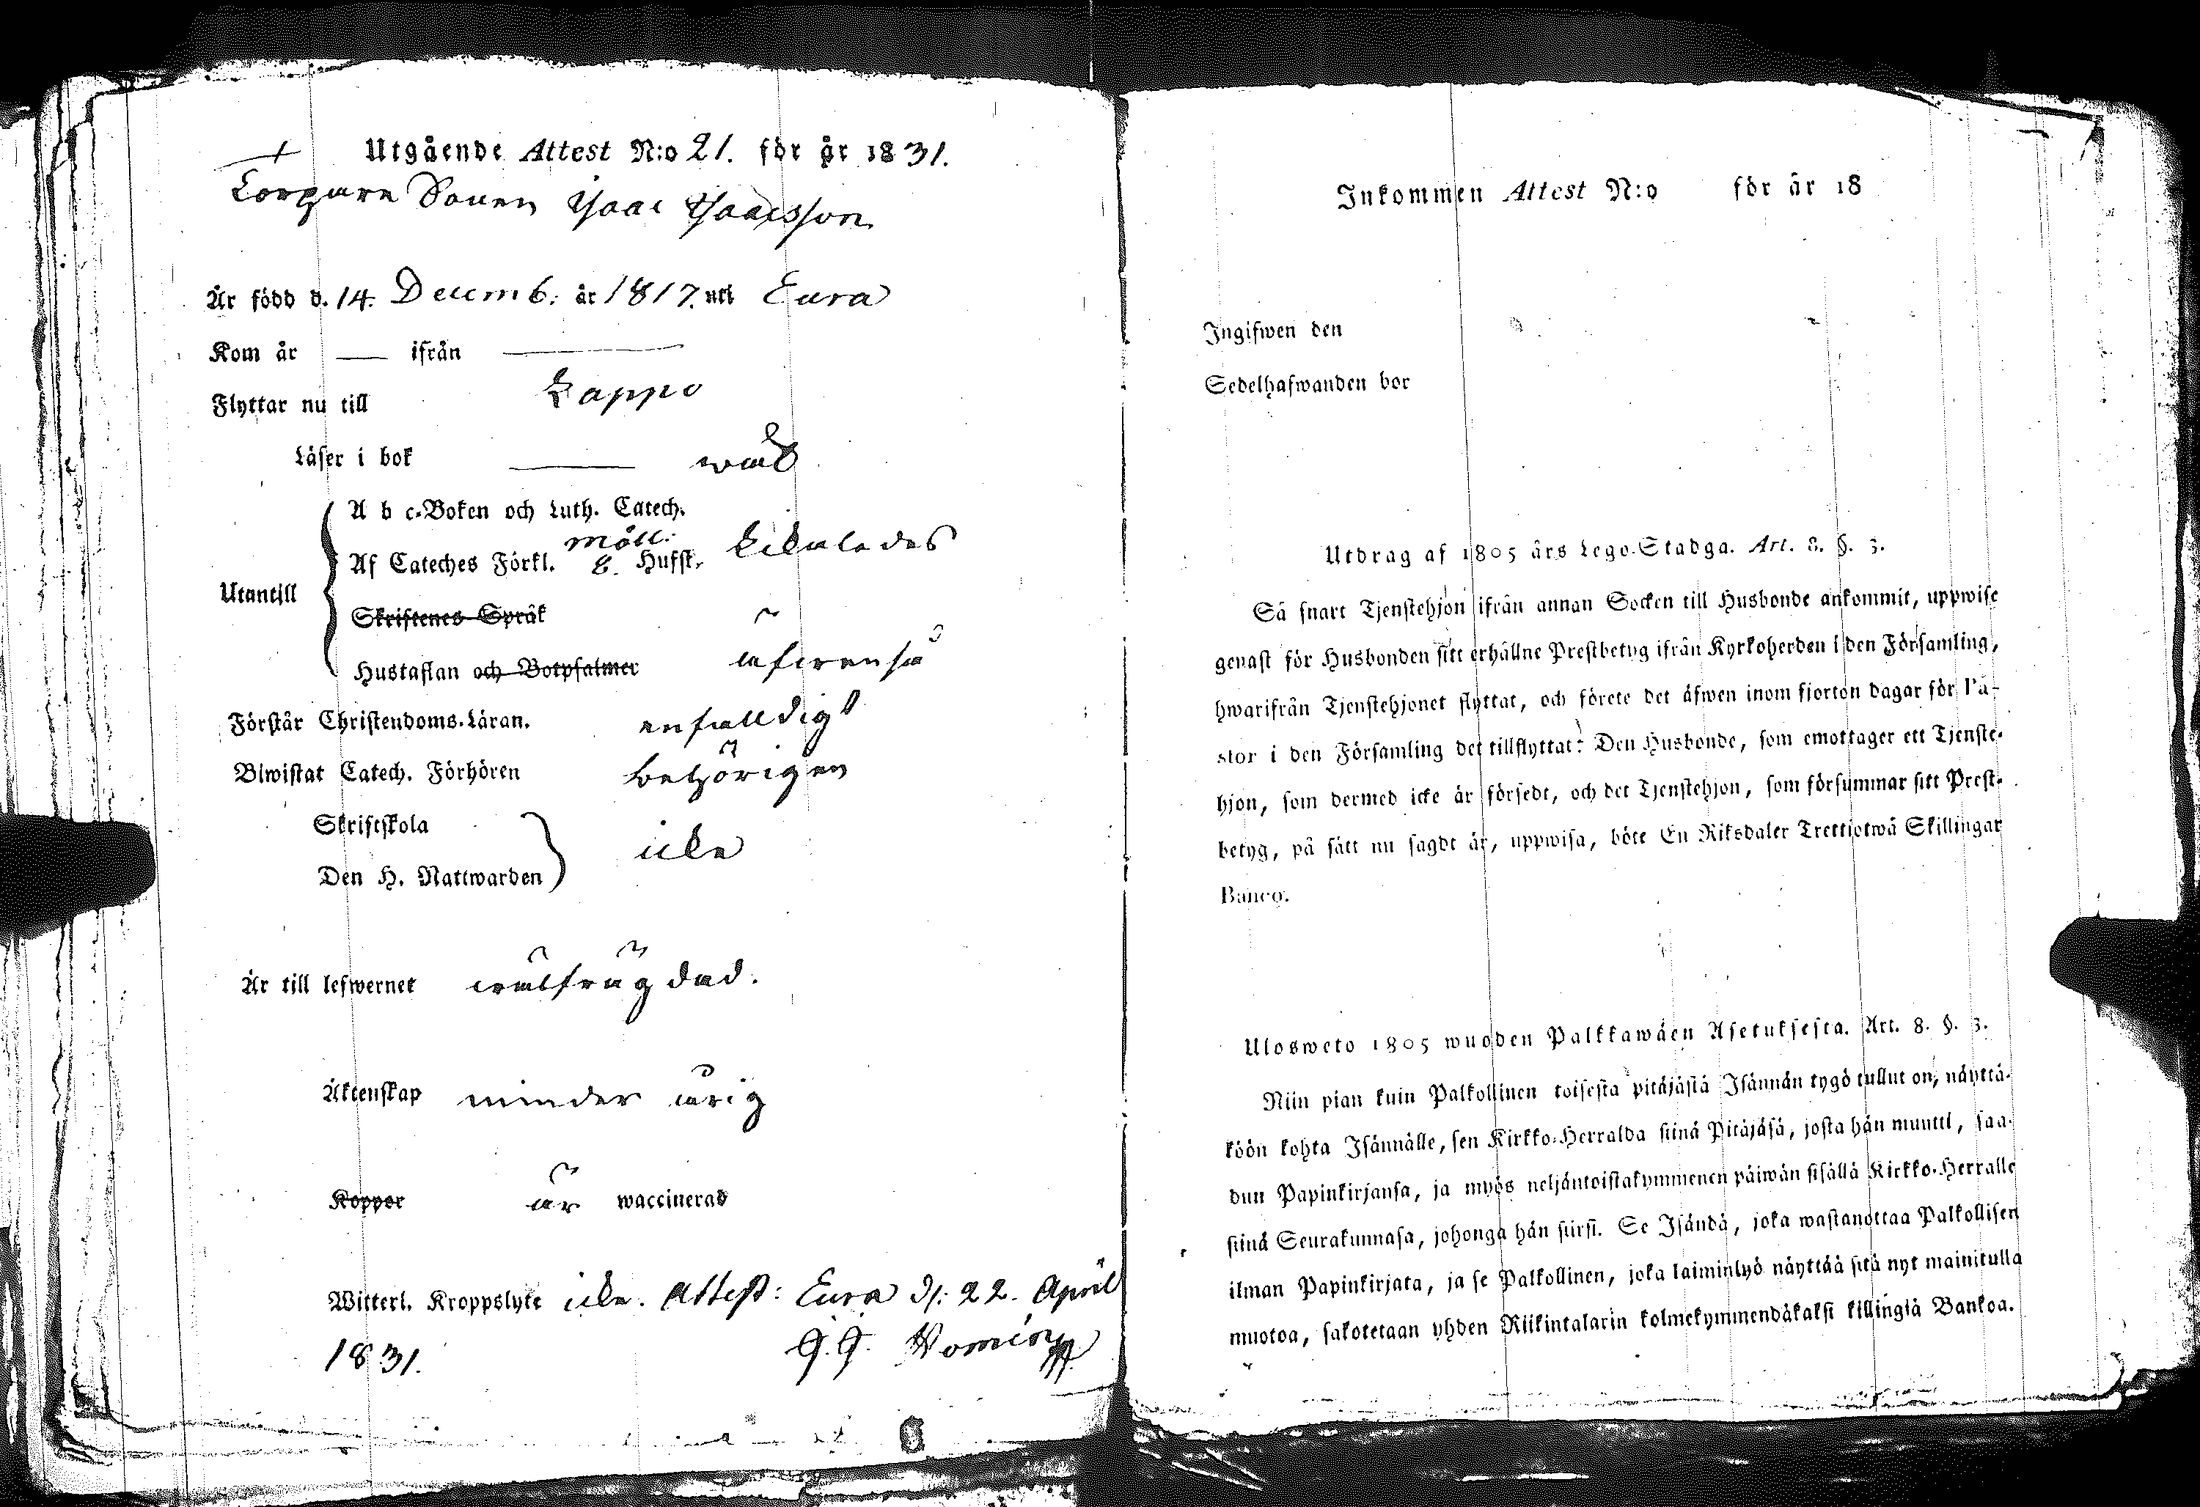 Utgående Attest N:o 21. för år 1831.
Torpare Sonen Isaac Isaacsson
Är född d. 14. Decemb: år 1817. uti Eura
Kom år — ifrån —
Flyttar nu till Lappo
Läser i bok — wäl
A b c-Boken och Luth. Catech.
Af Cateches Förkl. Möll. Hufst.
Utantill
Skriftenes Språk
Hustaflan och Botpsalmer äfwenså
Förstår Christendoms-Läran. enfalldigt
Biwistat Catech. Förhören behörigen
Skriftskola
Den H. Nattwarden icke
Är till lefwernet wälfrägdad.
Äktenskap minder årig
Koppor är waccinerad
Witterl. Kroppslyte icke. Attest: Eura d: 22. April
1831.
Inkommen Attest N:o för år 18
Ingifwen den
Sedelhafwanden bor
Utdrag af 1805 års Lego-Stadga. Art. 8. §. 3.
Så snart Tjenstehjon ifrån annan Socken till Husbonde ankommit, uppwise
genast för Husbonden sitt erhållne Prestbetyg ifrån Kyrkoherden i den Församling,
hwarifrån Tjenstehjonet flyttat, och förete det äfwen inom fjorton dagar för Pa-
stor i den Församling det tillflyttat: Den Husbonde, som emottager ett Tjenste-
hjon, som dermed icke är försedt, och det Tjenstehjon, som försummar sitt Prest-
betyg, på sätt nu sagdt är, uppwisa, böte En Riksdaler Trettiotwå Skillingar
Banco.
Ulosweto 1805 wuoden Palkkawäen Asetuksesta. Art. 8. §. 3.
Niin pian kuin Palkollinen toisesta pitäjästä Isännän tygö tullut on, näyttä-
köön kohta Isännälle, sen Kirkko-Herralda siinä Pitäjäsä, josta hän muutti, saa-
dun Papinkirjansa, ja myös neljäntoistakymmenen päiwän sisällä Kirkko-Herralle
siinä Seurakunnasa, johonga hän siirsi. Se Isändä, joka wastanottaa Palkollisen
ilman Papinkirjata, ja se Palkollinen, joka laiminlyö näyttää sitä nyt mainitulla
muotoa, sakotetaan yhden Riikintalarin kolmekymmendäkaksi killingiä Bankoa.